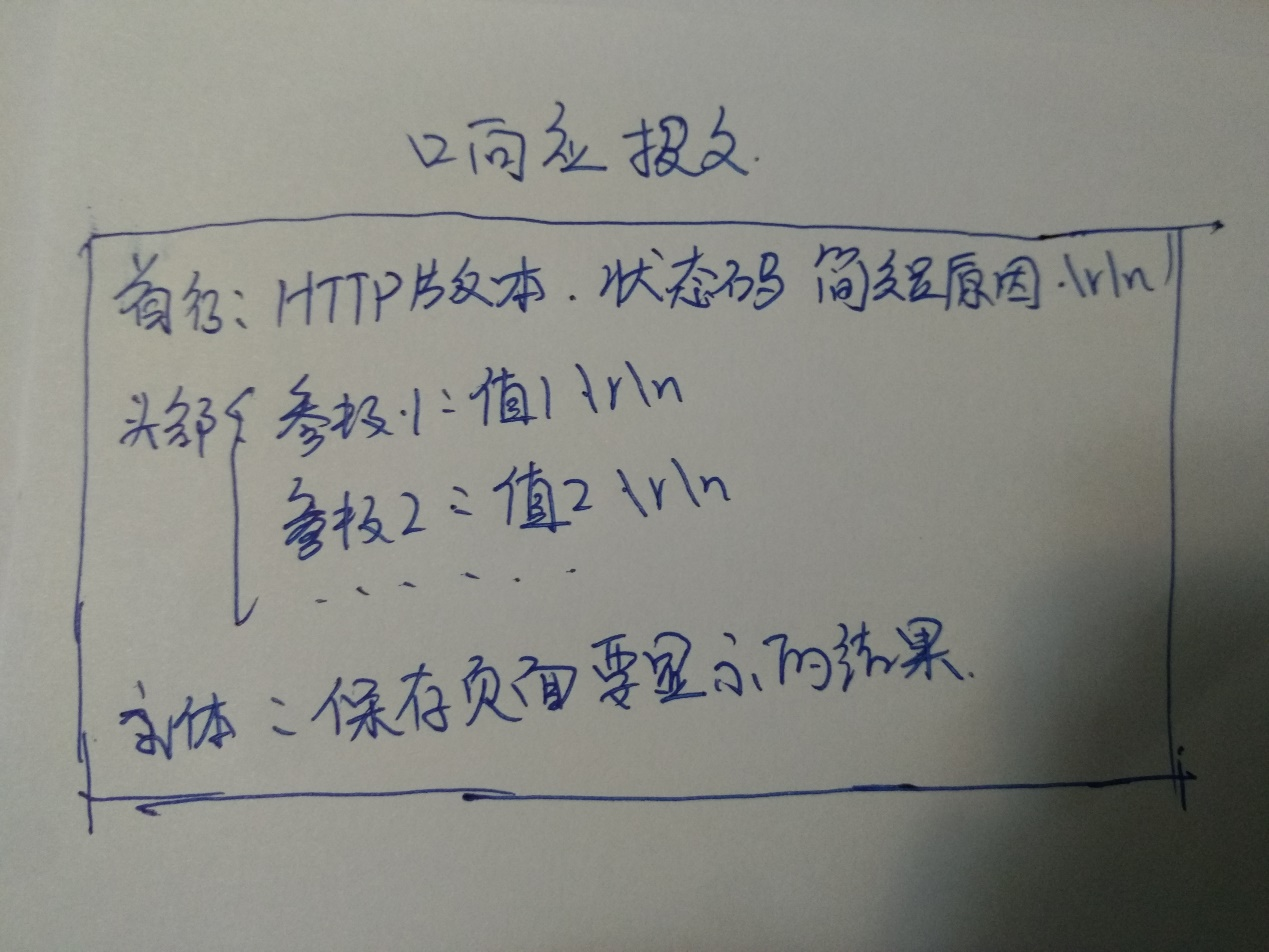 响应报文.
首行: HTTP版本. 状态码 简短原因.\r\n
头部{ 参数1: 值1 \r\n
参数2: 值2 \r\n
......
主体: 保存页面要显示的结果.